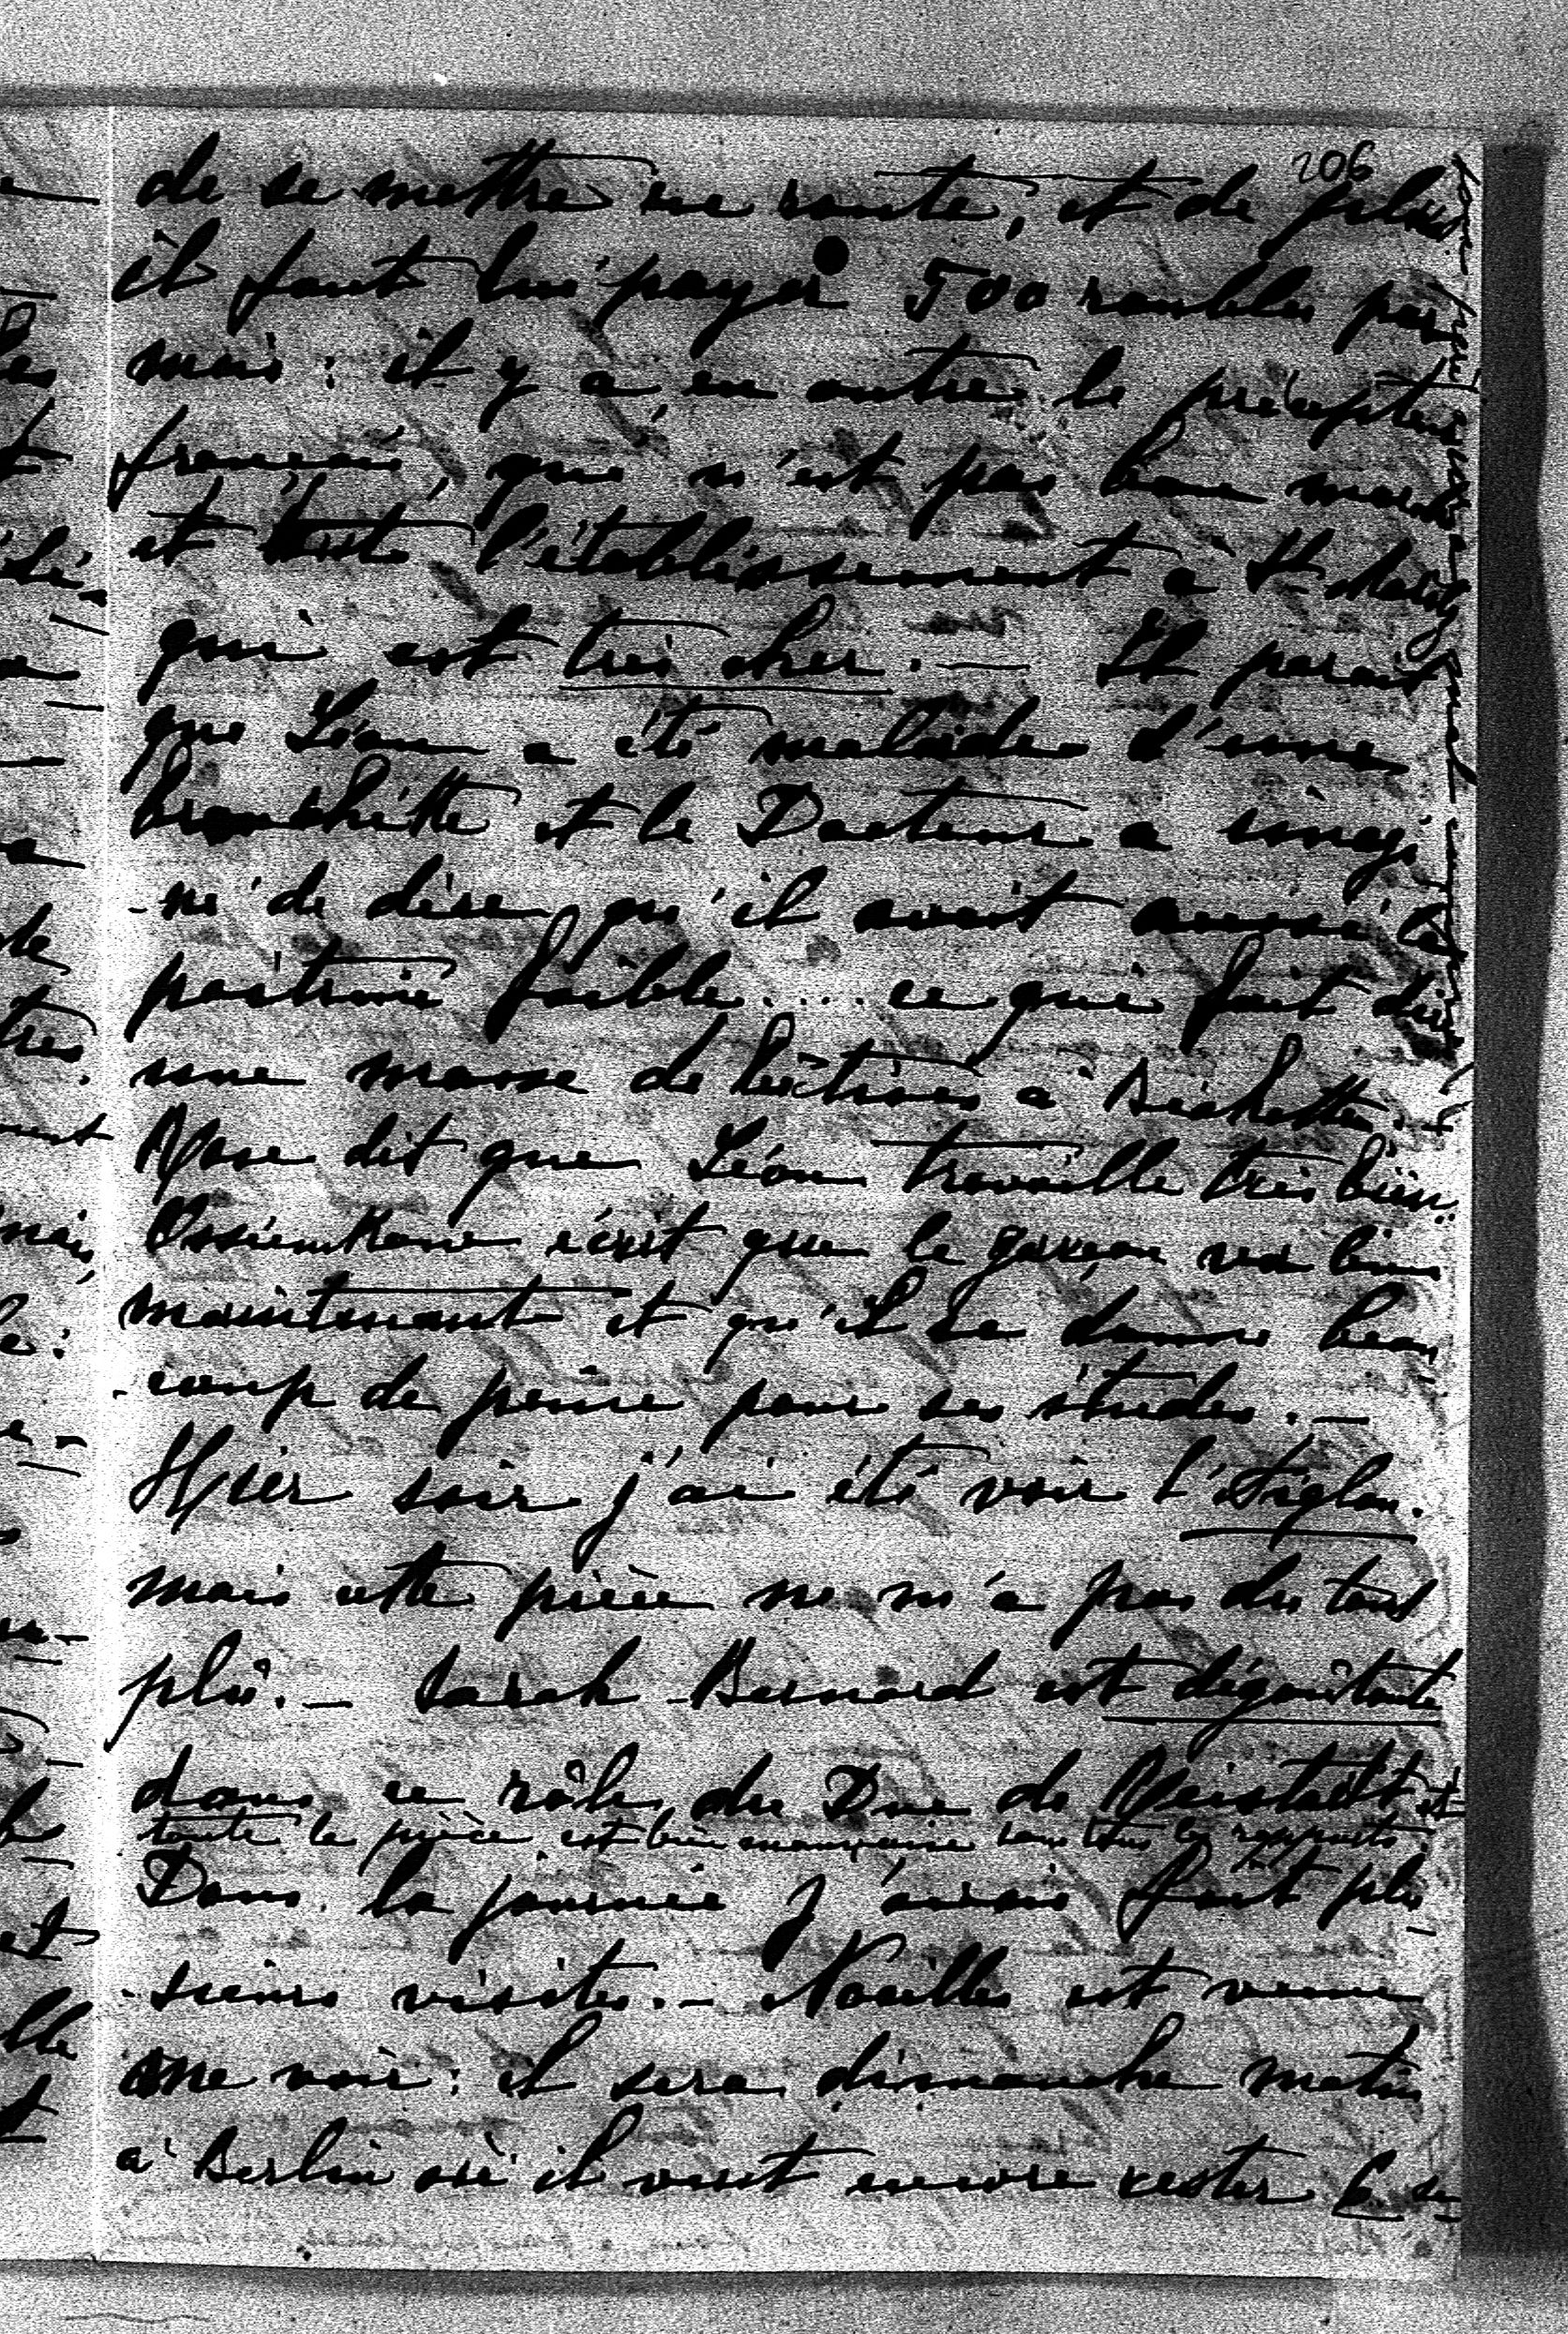 206
de se mettre en route, et de plus
il faut lui payer 500 roubles par
mois : il y a en outre le précepteur
français, que n'est pas bon marché
et tout l'établissement à St Moritz
qui est très cher. — Il parait
que Léon a été malade d'une
bronchitte et le Docteur a imagi
-né de dire qu'il avait aussi la
poitrine faible.... ce qui fait dire
une masse de bêtises à Béchette.
Rose dit que Léon travaille très bien.
écrit que le garçon va bien
maintenant et qu'il se donne beau
-coup de peine pour ses études. —
Hier soir j'ai été voir l'Aiglon.
mais cette pièce ne m'a pas du tout
plû. — Sarah Bernard est dégoûtante
dans ce rôle du Duc de Reistadt et
toute la pièce est bien mauvaise sous tous les rapports.
Dans la journée j'avais fait plu-
-sieurs visites. — Noailles est venu
me voir : il sera dimanche matin
à Berlin où il veut encore rester 6 se